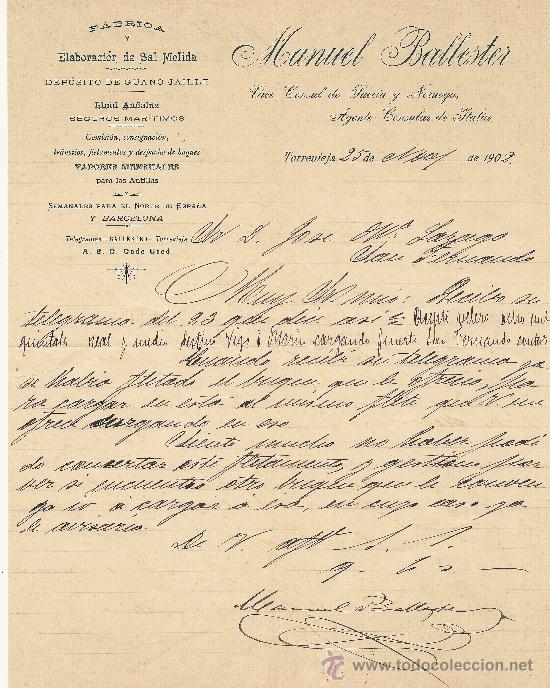 FÁBRICA
Y
Elaboración de Sal Molida
DEPÓSITO DE GUANO JAILLE
SEGUROS MARÍTIMOS
Comisión, consignación,
tránsitos, fletamentos y despacho de buques
VAPORES MENSUALES
para las Antillas
SEMANALES PARA EL NORTE DE ESPAÑA
Y BARCELONA
Telegramas BALLESTER Torrevieja
A. B. C. Code Used
Manuel Ballester
Vice Consul de Suecia y Noruega,
Agente Consular de Italia
Torrevieja 25 de de 190
Sr. D. Jose Mª Lazaga
San Fernando
Muy Sr mio: Recibi su
telegrama del 23 que dice así
quintales real y medio Vigo cargando San Fernando
Cuando recibi su telegrama ya
se habia fletado el buque, que le ofreci pa
ra cargar en esta al mismo flete que V me
cargando en esa
Siento mucho no haber podi
do concertar este fletamento, y gestiono por
ver si encuentro otro buque que le conven
ga ir á cargar a esa, en cuyo caso ya
le avisaria
De V. aff S. S.
q. b. s. m.
Manuel Ballester
www.todocoleccion.net